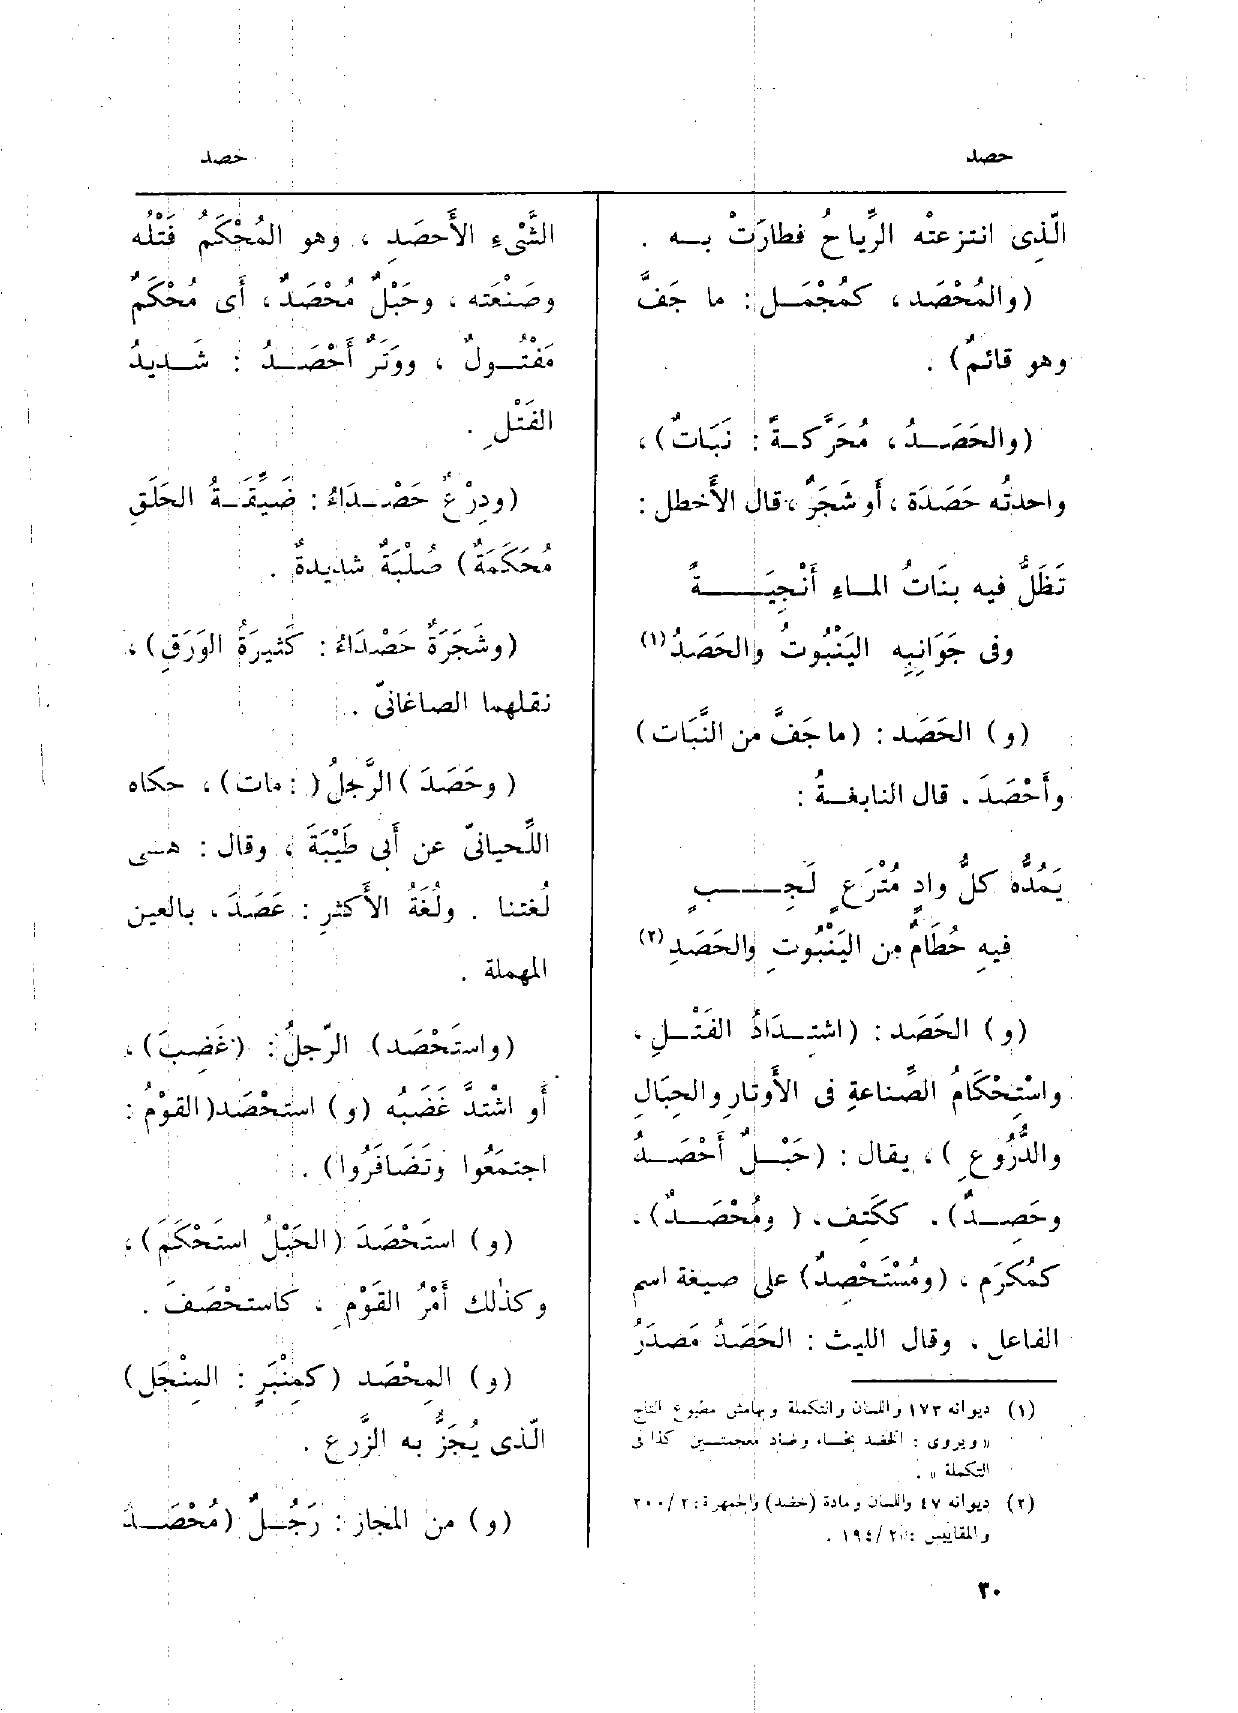 حصد
حصد
الَّذى انتزعتْه الرِّياحُ فطارَتْ بــه .
(والمُحْصَد ، كمُجْمَــل : ما جَفَّ
وهو قائمٌ) .
(والحَصَــدُ ، مُحَرَّكــةً : نَبَاتٌ) ،
واحدتُه حَصَدَة ، أَو شَجَرٌ ، قال الأَخطل :
تَظَلُّ فيه بنَاتُ المــاءِ أَنْجِيَــــةً
وفى جَوَانِبِه اليَنْبُوتُ والحَصَدُ (١)
(و) الحَصَد : (ما جَفَّ من النَّبَات)
وأَحْصَدَ . قال النابغــةُ :
يَمُدُّه كلُّ وادٍ مُتْرَعٍ لَجِــــبٍ
فيهِ حُطَامٌ من اليَنْبُوتِ والحَصَدِ (٢)
(و) الحَصَد : (اشتِــدَادُ الفَتْــلِ ،
واسْتِحْكَامُ الصِّناعةِ فى الأَوتارِ والحِبَالِ
والدُّرُوعِ ) ، يقال : (حَبْــلٌ أَحْصَــدُ
وحَصِــدٌ) . ككَتِف ، ( ومُحْصَــدٌ) .
كمُكرَم ، (ومُسْتَحْصِدٌ) على صيغة اسم
الفاعل . وقال الليث : الحَصَدُ مَصدَرُ
(١) ديوانه ١٧٣ واللسان والتكملة وبهامش مطبوع التاج
« ويروى : الخضد بخــاء وضاد معجمتــين كذا فى
التكملة » .
(٢) ديوانه ٤٧ واللسان ومادة (خضد) والجمهرة : ٢ /٢٠٠
والمقاييس : ٢ /١٩٤ .
٣٠
الشَّىْءِ الأَحصَدِ ، وهو المُحْكَمُ فَتْلُه
وصَنْعَته ، وحَبْلٌ مُحْصَدٌ ، أَى مُحْكَمٌ
مَفْتُــولٌ ، ووَتَرٌ أَحْصَــدُ : شَــديدُ
الفَتْلِ .
(ودِرْعٌ حَصْــدَاءُ : ضَيِّقَــةُ الحَلَقِ
مُحَكَمَةٌ) صُلْبَةٌ شديدةٌ .
(وشَجَرَةٌ حَصْدَاءُ : كَثيرَةُ الوَرَقِ) ،
نقلهما الصاغانىّ .
( وحَصَدَ ) الرَّجلُ ( : مات ) ، حكاه
اللَّحيانىّ عن أَبى طَيْبَةَ ، وقال : هــى
لُغتنا . ولُغَةُ الأَكثرِ : عَصَدَ ، بالعين
المهملة .
(واستَحْصَد) الرّجلُ : (غَضِبَ) ،
أَو اشْتدَّ غَضَبُه (و) استَحْصَد (القَوْمُ :
اجتمَعُوا وتَضَافَرُوا) .
(و) استَحْصَدَ (الحَبْلُ استَحْكَمَ) ،
وكذٰلك أَمْرُ القَوْمِ ، كاستحْصَفَ .
(و) المِحْصَد (كمِنْبَرٍ : المِنْجَل)
الّذى يُجَزُّ به الزَّرع .
(و) من المجاز : رَجُــلٌ (مُحْصَــدُ